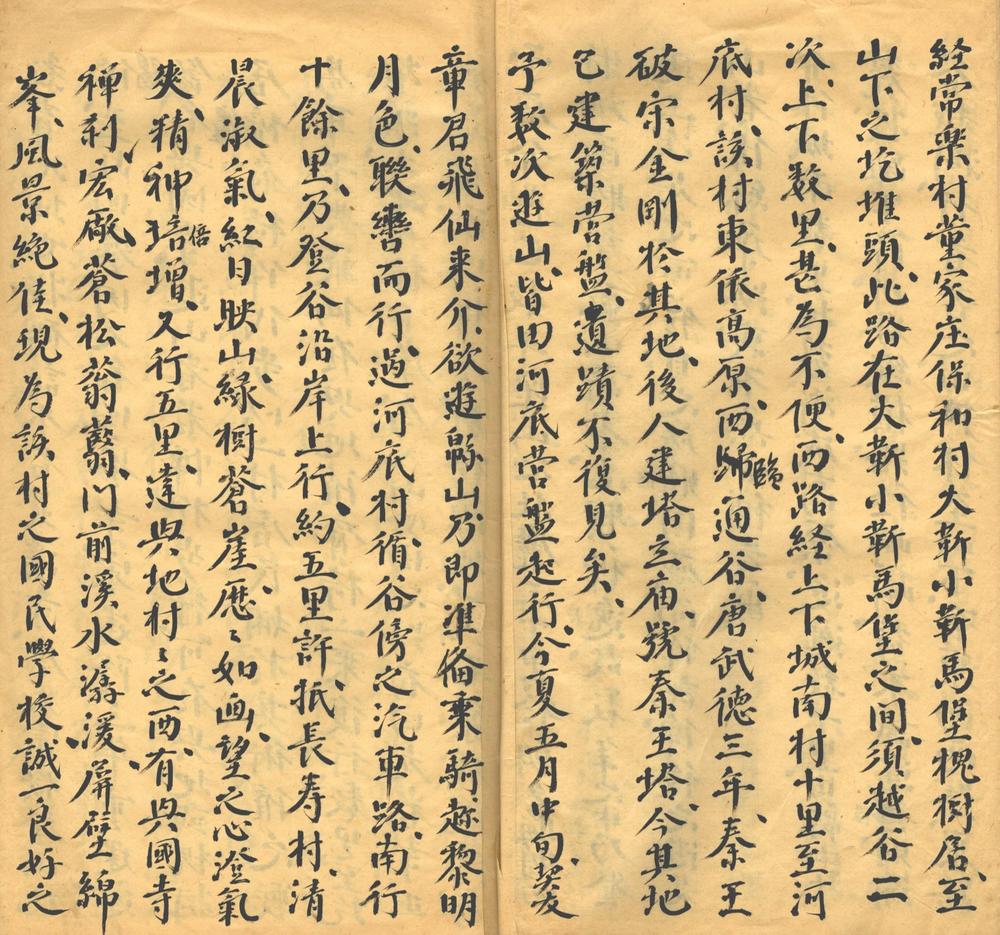 経常樂村董家庄保和村大靳小靳馬堡槐樹居、至
山下之圪堆頭、此路在大靳小靳馬堡之間、須越谷二
次、上下数里、甚為不便、西路経上下城南村十里至河
底村、該村東依高原、西臨通谷、唐武德三年、秦王
破宋金剛於其地、後人建塔立庙、號秦王塔、今其地
已建築营盤、遺蹟不復見矣、
予数次逰山、皆由河底营盤起行、今夏五月中旬、契友
章君飛仙来介、欲逰綿山、乃即準备乘騎、趂黎明
月色、聯轡而行、過河底村、循谷傍之汽車路、南行
十餘里、乃登谷沿岸上行、約五里許、抵長寿村、清
晨淑氣、紅日映山、緑樹蒼崖、歴々如画、望之心澄氣
爽、精神倍增、又行五里、達興地村、々之西、有興國寺
禅刹宏廠、蒼松蓊翳、门前溪水潺湲、屏壁綿
峯、風景絶佳、現為該村之國民學校、誠一良好之